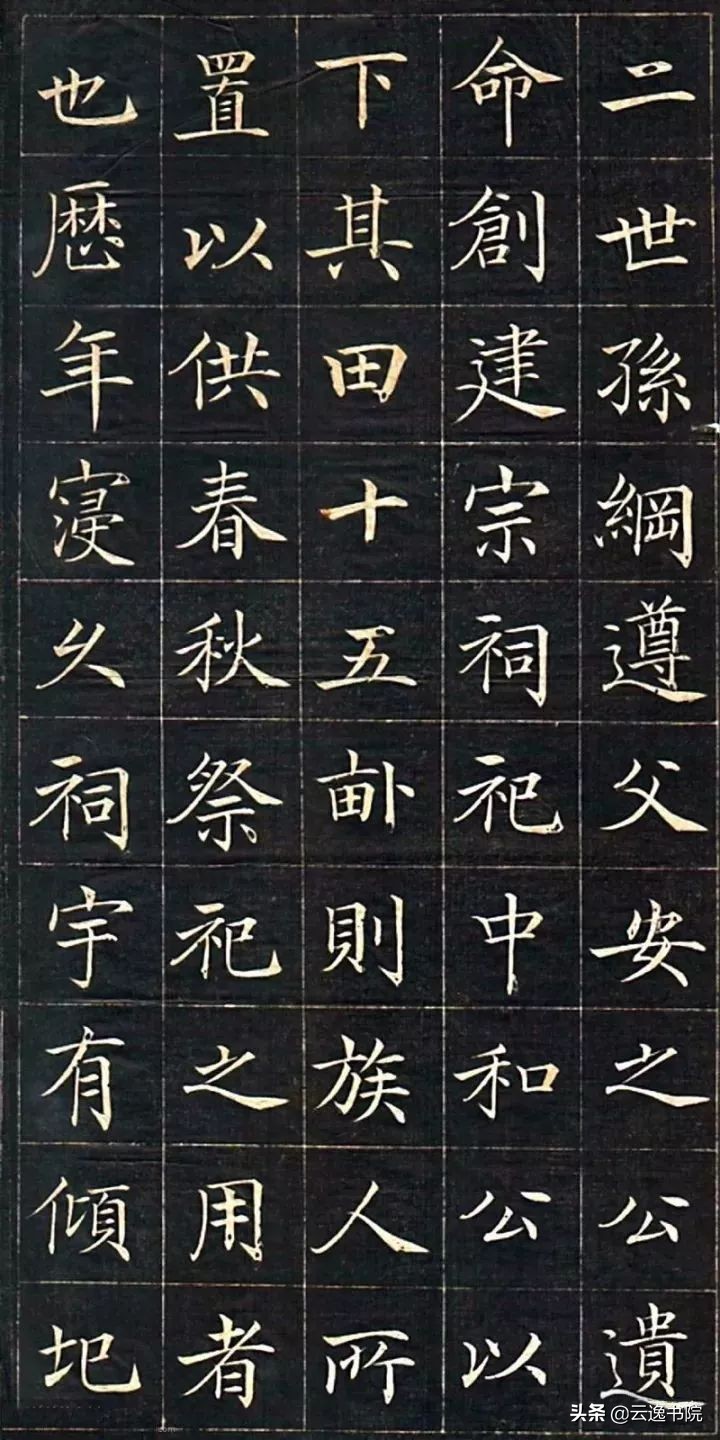 二世孫綱遵父安之公遺
命創建宗祠祀中和公以
下其田十五畝則族人所
置以供春秋祭祀之用者
也歴年寖久祠宇有傾圮
头条@云逸书院